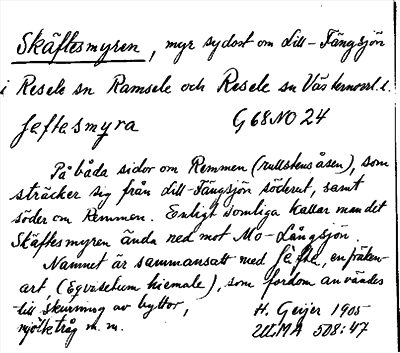 Skäftesmyren, myr sydost om Lill-Fängsjön
i Resele sn Ramsele och Resele sn Västernorrl. l.
jeftesmyra G68NO24
På båda sidor om Remmen (rullstensåsen), som
sträcker sig från Lill-Fängsjön söderut, samt
söder om Remmen. Enligt somliga kallar man det
Skäftesmyren ända ned mot Mo-Långsjön.
Namnet är sammansatt med jefte, en fräken-
art, (Equisetum hiemale), som fordom användes
till skurning av byttor, H. Geijer 1905
mjölktråg m.m. ULMA 508:47